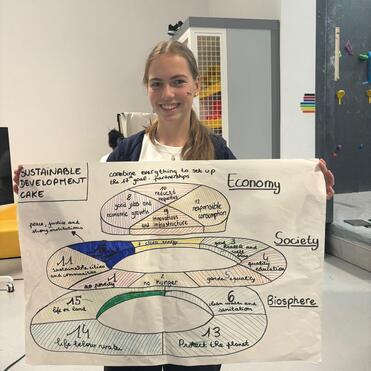 SUSTAINABLE
DEVELOPMENT
CAKE
combine everything to set up
the 17 goal: partnerships
Economy
10
reduced
inequalities
8
good jobs and
economic growth
12
responsible
consumption
9
innovations
and infrastructure
peace, justice and
strong institutions
Society
7 clean energy
3
good health and
11
sustainable cities
and communities
4
quality
education
1
no poverty
2
no hunger
5
gender equality
Biosphere
15
life on land
6
clean water and
sanitation
14
life below water
13
Protect the planet